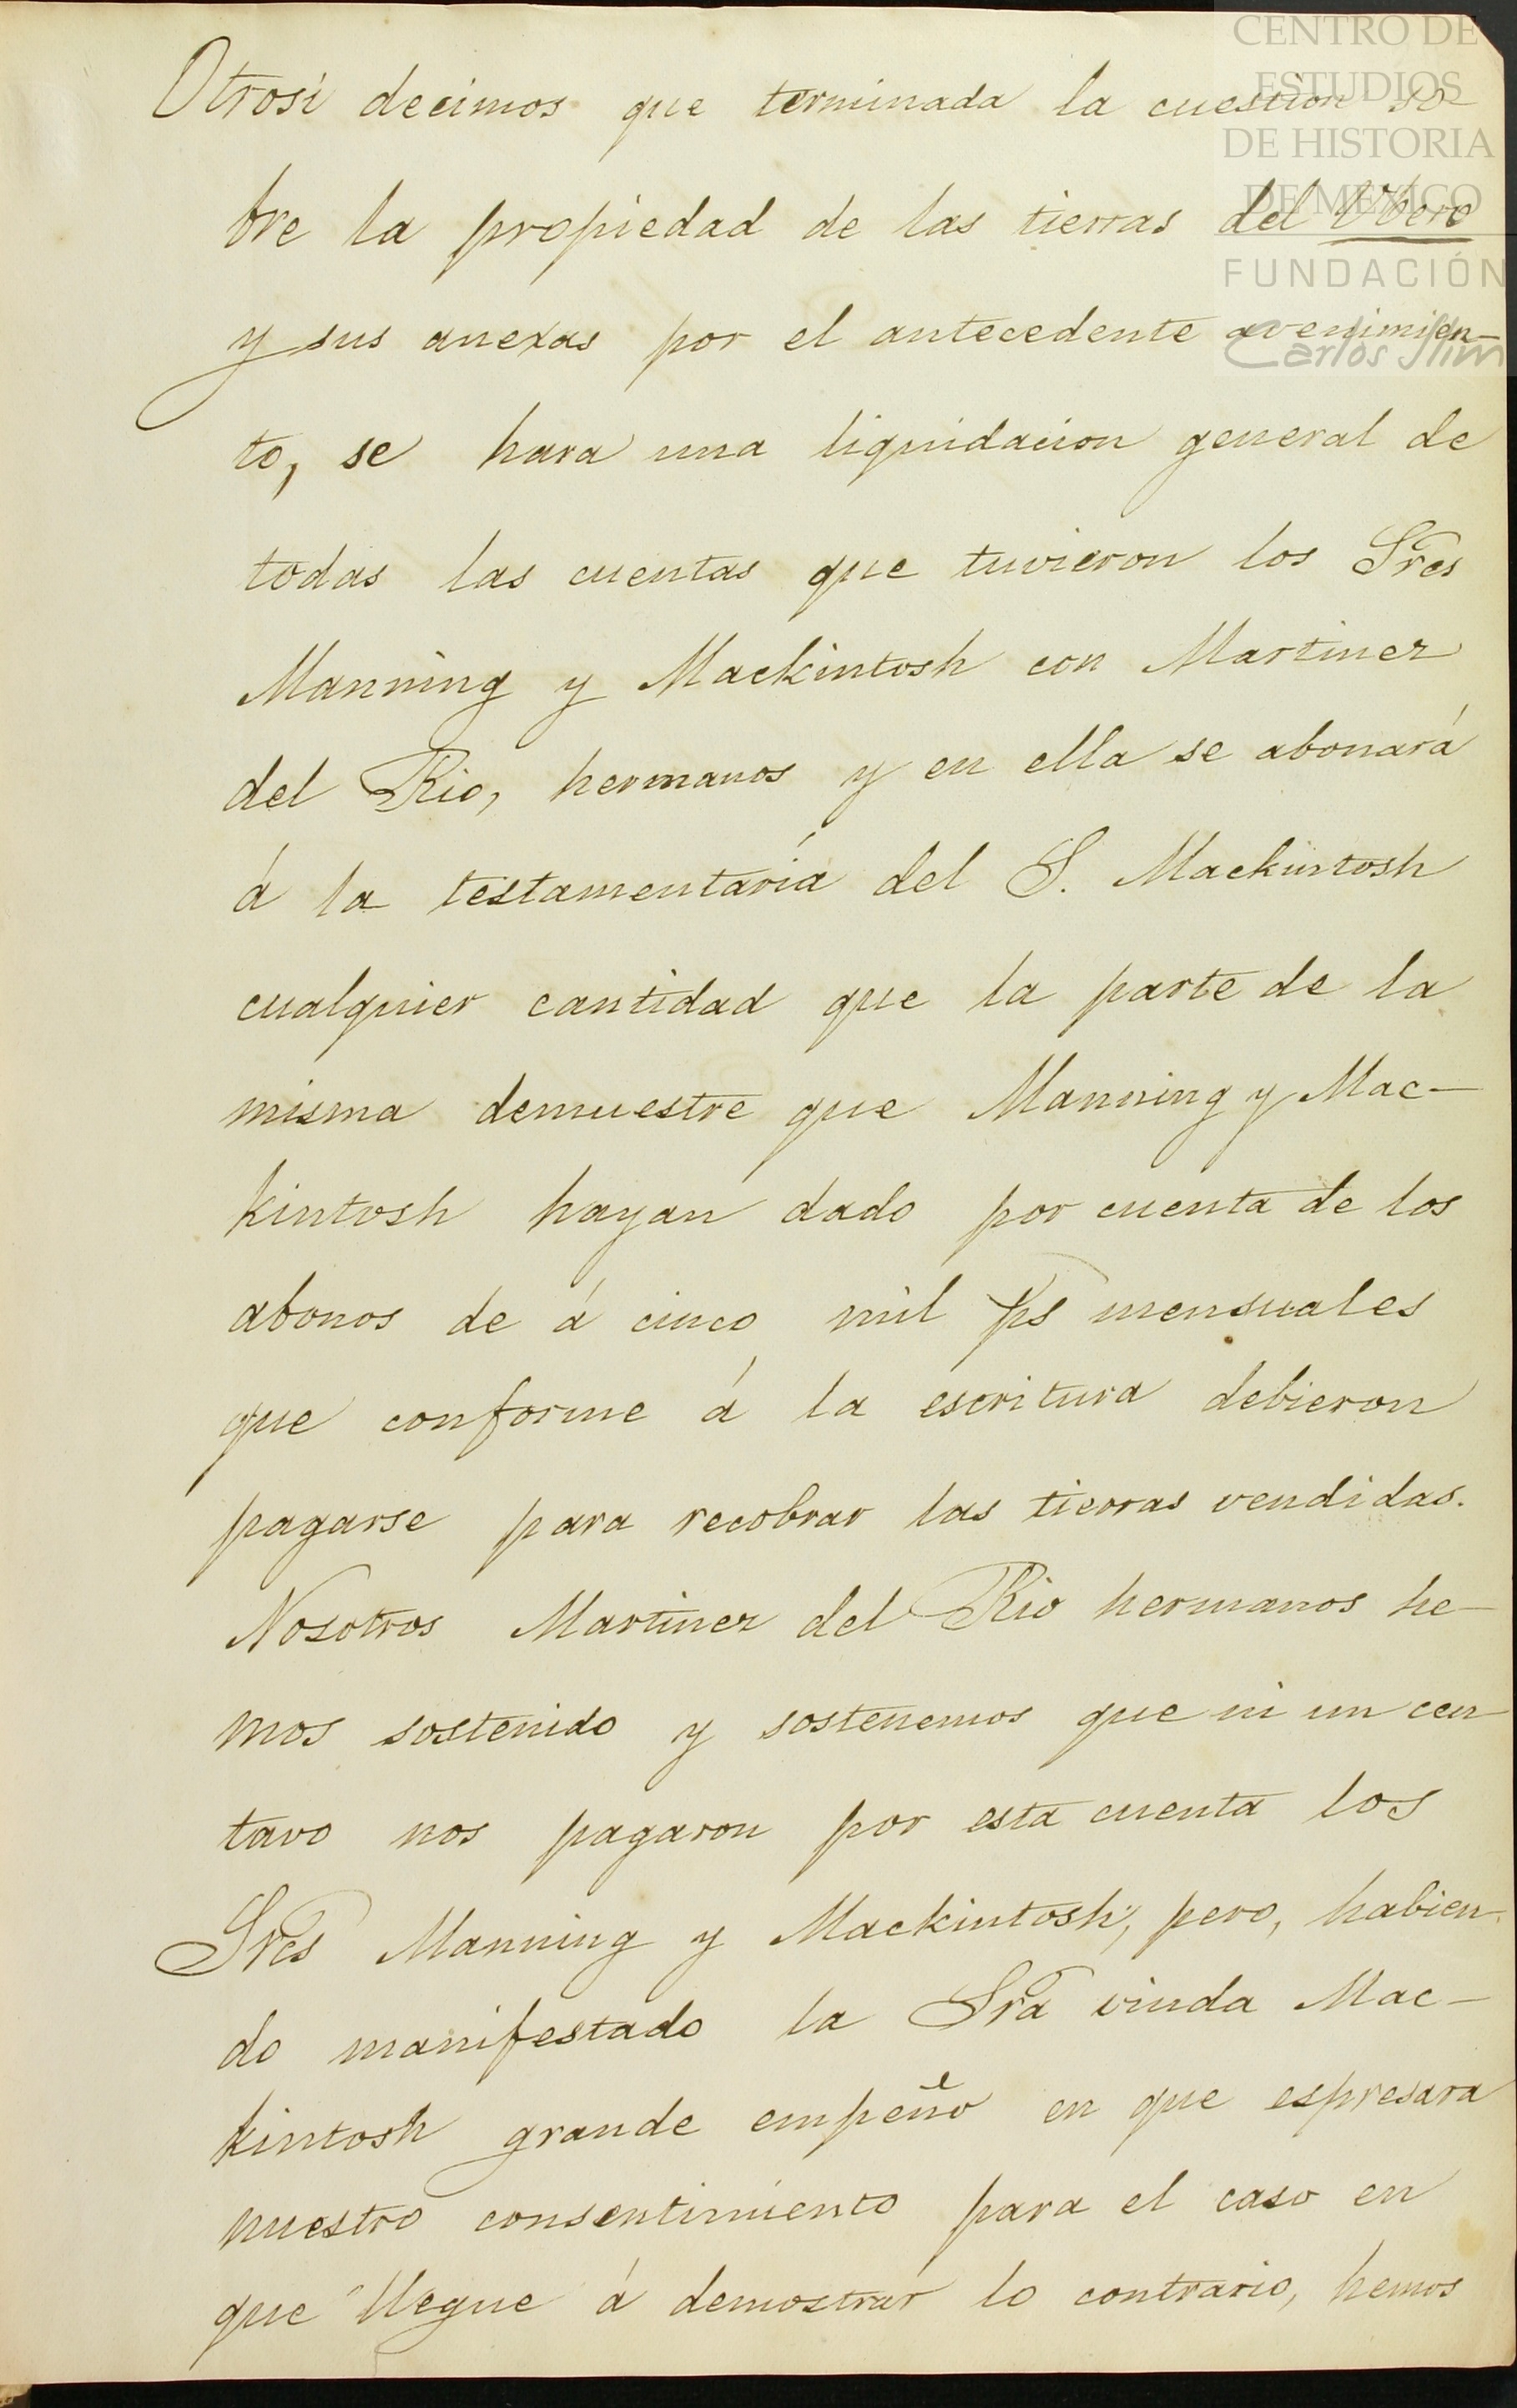 CENTRO DE
ESTUDIOS
DE HISTORIA
DE MÉXICO
FUNDACIÓN
Carlos Slim
Otrosi decimos que terminada la cuestion so-
bre la propiedad de las tierras del Ubero
y sus anexas por el antecedente avenimien-
to, se hara una liquidacion general de
todas las cuentas que tuvieron los Sres
Manning y Mackintosh con Martinez
del Rio, hermanos y en ella se abonará
á la testamentaría del S. Mackintosh
cualquier cantidad que la parte de la
misma demuestre que Manning y Mac-
kintosh hayan dado por cuenta de los
abonos de á cinco mil ps mensuales
que conforme á la escritura debieron
pagarse para recobrar las tierras vendidas.
Nosotros Martinez del Rio hermanos he-
mos sostenido y sostenemos que ni un cen
tavo nos pagaron por esta cuenta los
Sres Manning y Mackintosh; pero, habien-
do manifestado la Sra viuda Mac-
kintosh grande empeño en que espresara
nuestro consentimiento para el caso en
que llegue á demostrar lo contrario, hemos